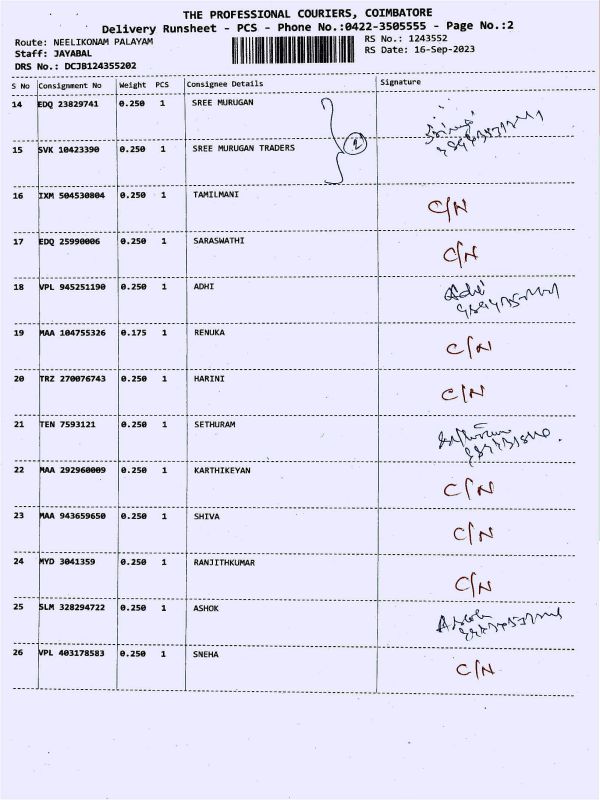 THE PROFESSIONAL COURIERS, COIMBATORE
Delivery Runsheet - PCS - Phone No.:0422-3505555 - Page No.:2
Route: NEELIKONAM PALAYAM RS No.: 1243552
Staff: JAYABAL RS Date: 16-Sep-2023
DRS No.: DCJB124355202
S No Consignment No Weight PCS Consignee Details Signature
14 EDQ 23829741 0.250 1 SREE MURUGAN
2
15 SVK 10423390 0.250 1 SREE MURUGAN TRADERS
16 IXM 504530804 0.250 1 TAMILMANI C/N
17 EDQ 25990006 0.250 1 SARASWATHI C/N
18 VPL 945251190 0.250 1 ADHI Adhi
19 MAA 104755326 0.175 1 RENUKA C/N
20 TRZ 270076743 0.250 1 HARINI C/N
21 TEN 7593121 0.250 1 SETHURAM
22 MAA 292960009 0.250 1 KARTHIKEYAN C/N
23 MAA 943659650 0.250 1 SHIVA C/N
24 MYD 3041359 0.250 1 RANJITHKUMAR C/N
25 SLM 328294722 0.250 1 ASHOK Ashok
26 VPL 403178583 0.250 1 SNEHA C/N